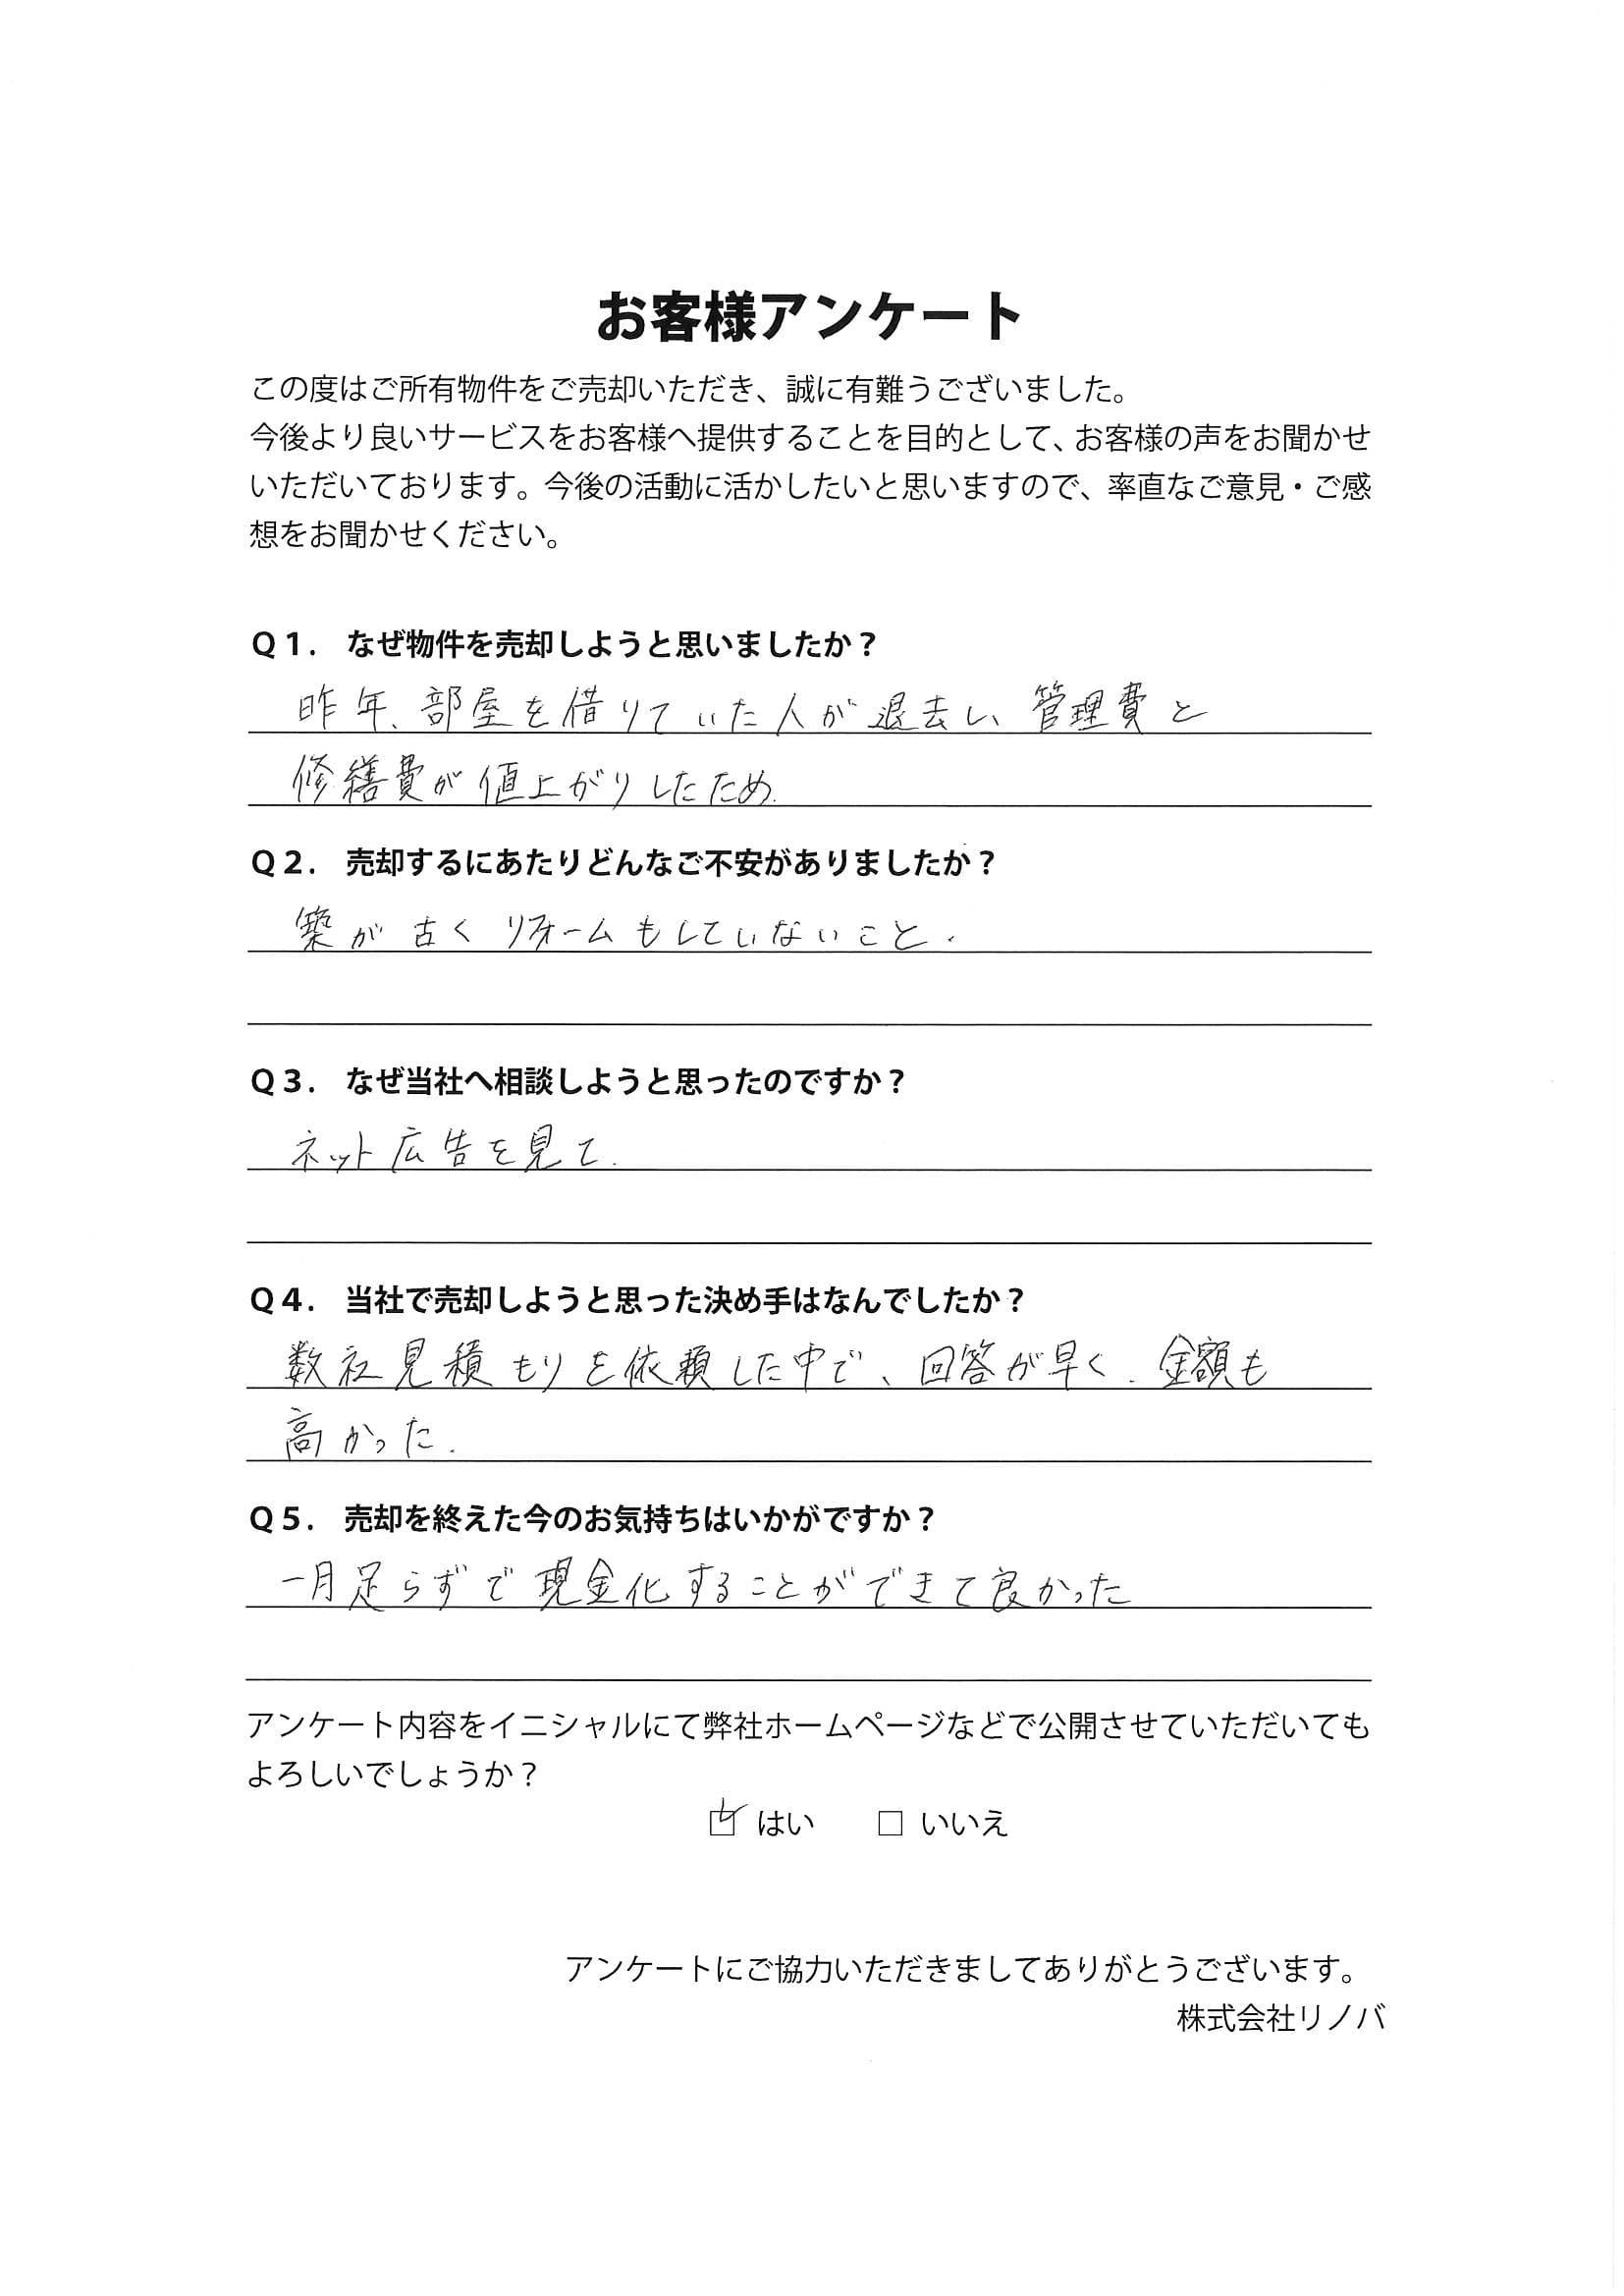 お客様アンケート
この度はご所有物件をご売却いただき、誠に有難うございました。
今後より良いサービスをお客様へ提供することを目的として、お客様の声をお聞かせ
いただいております。今後の活動に活かしたいと思いますので、率直なご意見・ご感
想をお聞かせください。
Q1. なぜ物件を売却しようと思いましたか？
昨年、部屋を借りていた人が退去し、管理費と
修繕費が値上がりしたため.
Q2. 売却するにあたりどんなご不安がありましたか？
築が古くリフォームもしていないこと.
Q3. なぜ当社へ相談しようと思ったのですか？
ネット広告を見て.
Q4. 当社で売却しようと思った決め手はなんでしたか？
数社見積もりを依頼した中で、回答が早く.金額も
高かった.
Q5. 売却を終えた今のお気持ちはいかがですか？
一月足らずで現金化することができて良かった
アンケート内容をイニシャルにて弊社ホームページなどで公開させていただいても
よろしいでしょうか？
☑ はい □ いいえ
アンケートにご協力いただきましてありがとうございます。
株式会社リノバ